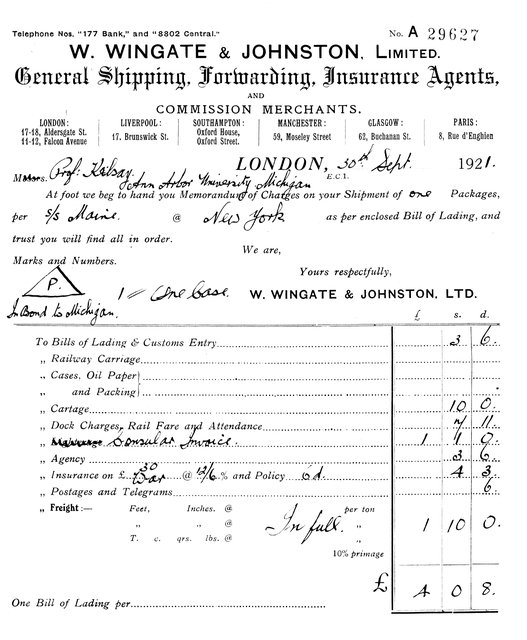 Telephone Nos. "177 Bank," and "8802 Central."
No. A 29627
W. WINGATE & JOHNSTON, LIMITED.
General Shipping, Forwarding, Insurance Agents,
AND
COMMISSION MERCHANTS.
LONDON: LIVERPOOL: SOUTHAMPTON: MANCHESTER: GLASGOW: PARIS:
17-18, Aldersgate St. 17. Brunswick St. Oxford House, 59, Moseley Street 62, Buchanan St. 8, Rue d'Enghien
11-12, Falcon Avenue Oxford Street.
LONDON, 30th Sept. 1921.
E.C.1.
Messrs. Prof: Kelsey.
Ann Arbor University Michigan
At foot we beg to hand you Memorandum of Charges on your Shipment of one Packages,
per s/s Maine. @ New York as per enclosed Bill of Lading, and
trust you will find all in order.
We are,
Marks and Numbers.
Yours respectfully,
P. 1 = One Case. W. WINGATE & JOHNSTON, LTD.
In Bond to Michigan.
£ s. d.
To Bills of Lading & Customs Entry 3 6.
„ Railway Carriage
„ Cases, Oil Paper
„ and Packing
„ Cartage 10 0.
„ Dock Charges, Rail Fare and Attendance 7 11.
„ Consular Invoice. 1 1 0.
„ Agency 3 6
„ Insurance on £ 30 War @ 12/6 % and Policy 6d. 4 3.
„ Postages and Telegrams 6.
„ Freight:— Feet, Inches. @ per ton
„ „ @ In full. „ 1 10 0.
T. c. qrs. lbs. @ „
10% primage
£ 4 0 8.
One Bill of Lading per